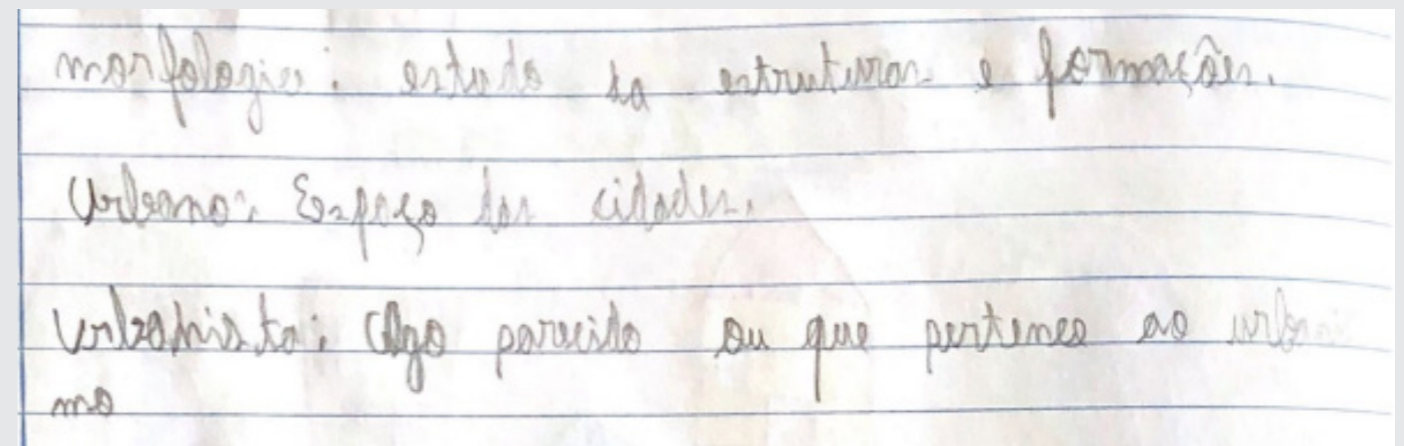 morfologia: estudo da estruturas e formações.
Urbano: Espaço das cidades.
Urbanista: Algo parecido ou que pertence ao urba
no